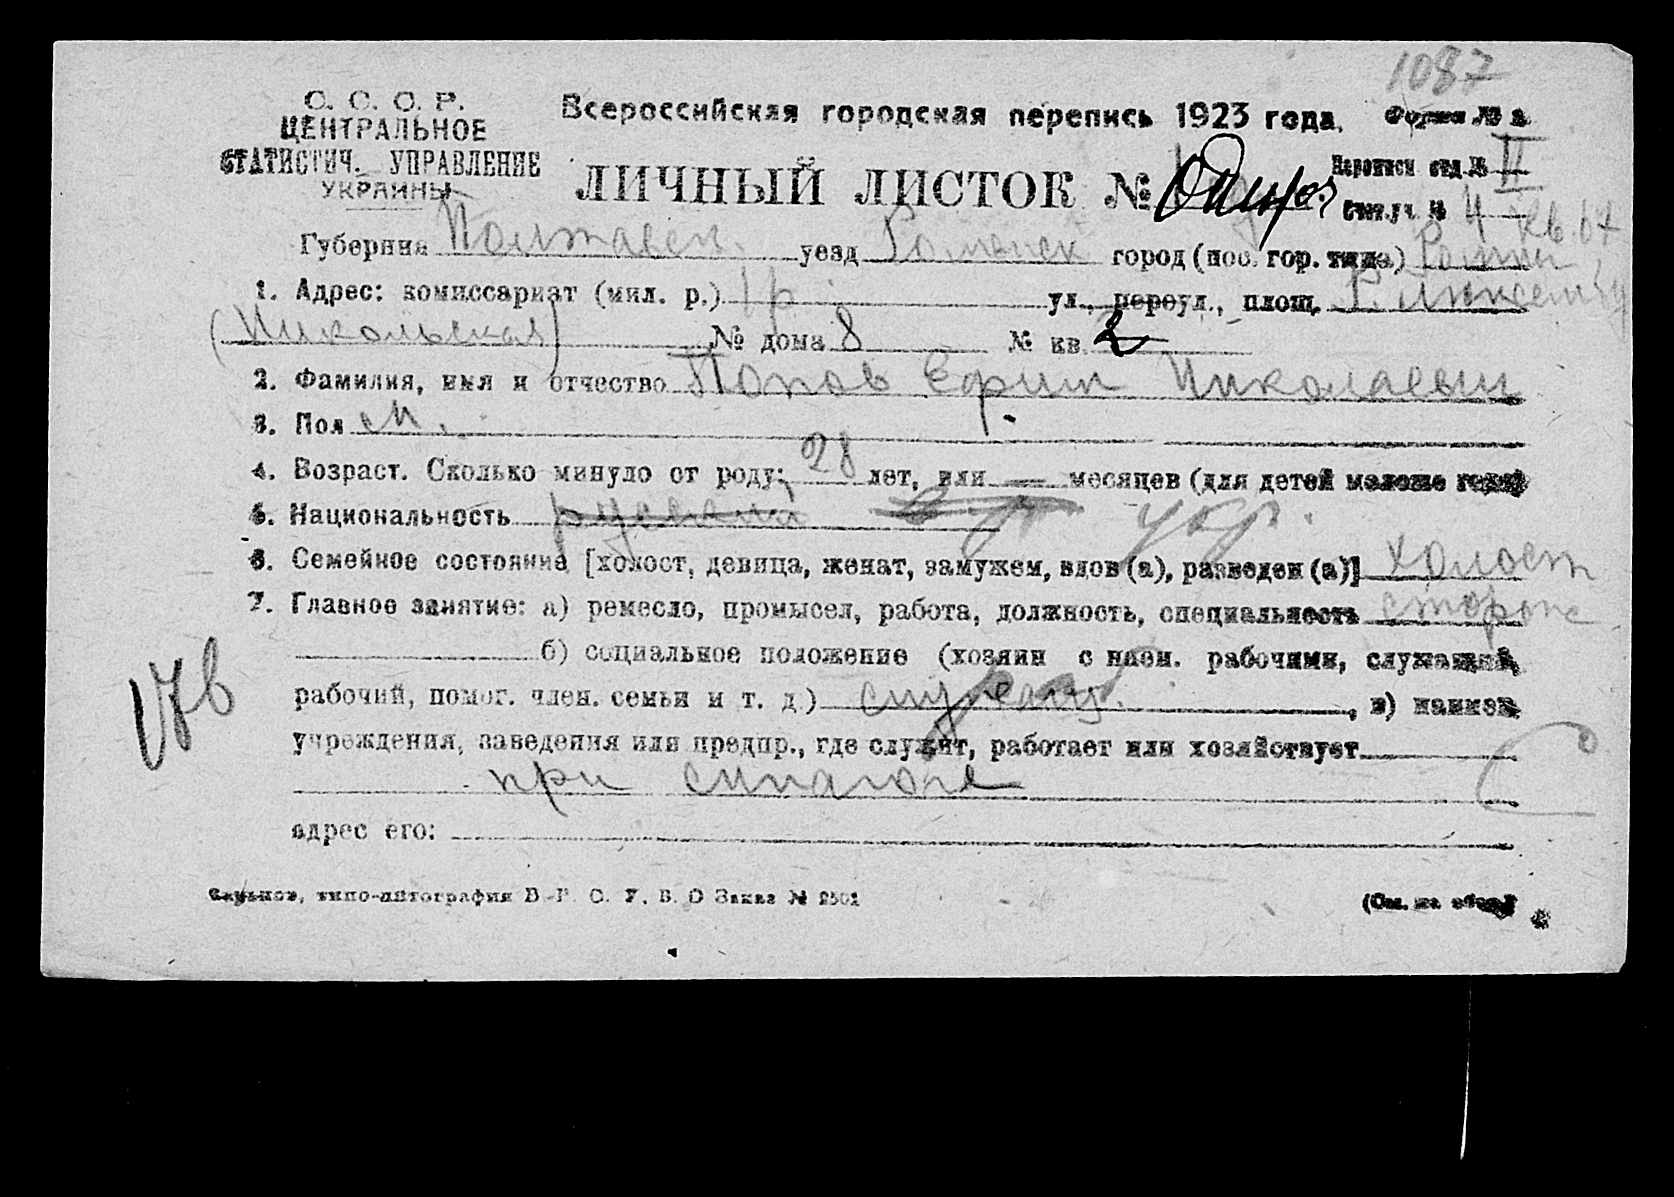 1087
С. С. С. Р.
ЦЕНТРАЛЬНОЕ
СТАТИСТИЧ. УПРАВЛЕНИЕ
УКРАИНЫ
Всероссийская городская перепись 1923 года.
Форма № 2
ЛИЧНЫЙ ЛИСТОК №
Переписн отд. № II
Счет.уч. № 4 кв. 67
Губерния Полтавск. уезд Роменск город (пос. гор. типа) Ромны
1. Адрес: комиссариат (мил. р.) 1 р. ул., переул., площ. Р. Люксембу
(Никольская) № дома 8 № кв. 2
2. Фамилия, имя и отчество Попов Ефим Николаевич
3. Пол М.
4. Возраст. Сколько минуло от роду: 28 лет, или — месяцев (для детей моложе года)
5. Национальность русский укр.
6. Семейное состояние [холост, девица, женат, замужем, вдов (а), разведен (а)] холост
7. Главное занятие: а) ремесло, промысел, работа, должность, специальность сторож
б) социальное положение (хозяин с наем. рабочими, служащий,
рабочий, помог. член. семьи и т. д.) служащ. , в) наимен.
учреждения, заведения или предпр., где служит, работает или хозяйствует
при синагоге
адрес его:
17в
Харьков, типо-литография В. У. В. О Заказ № 2501
(См. на обор.)